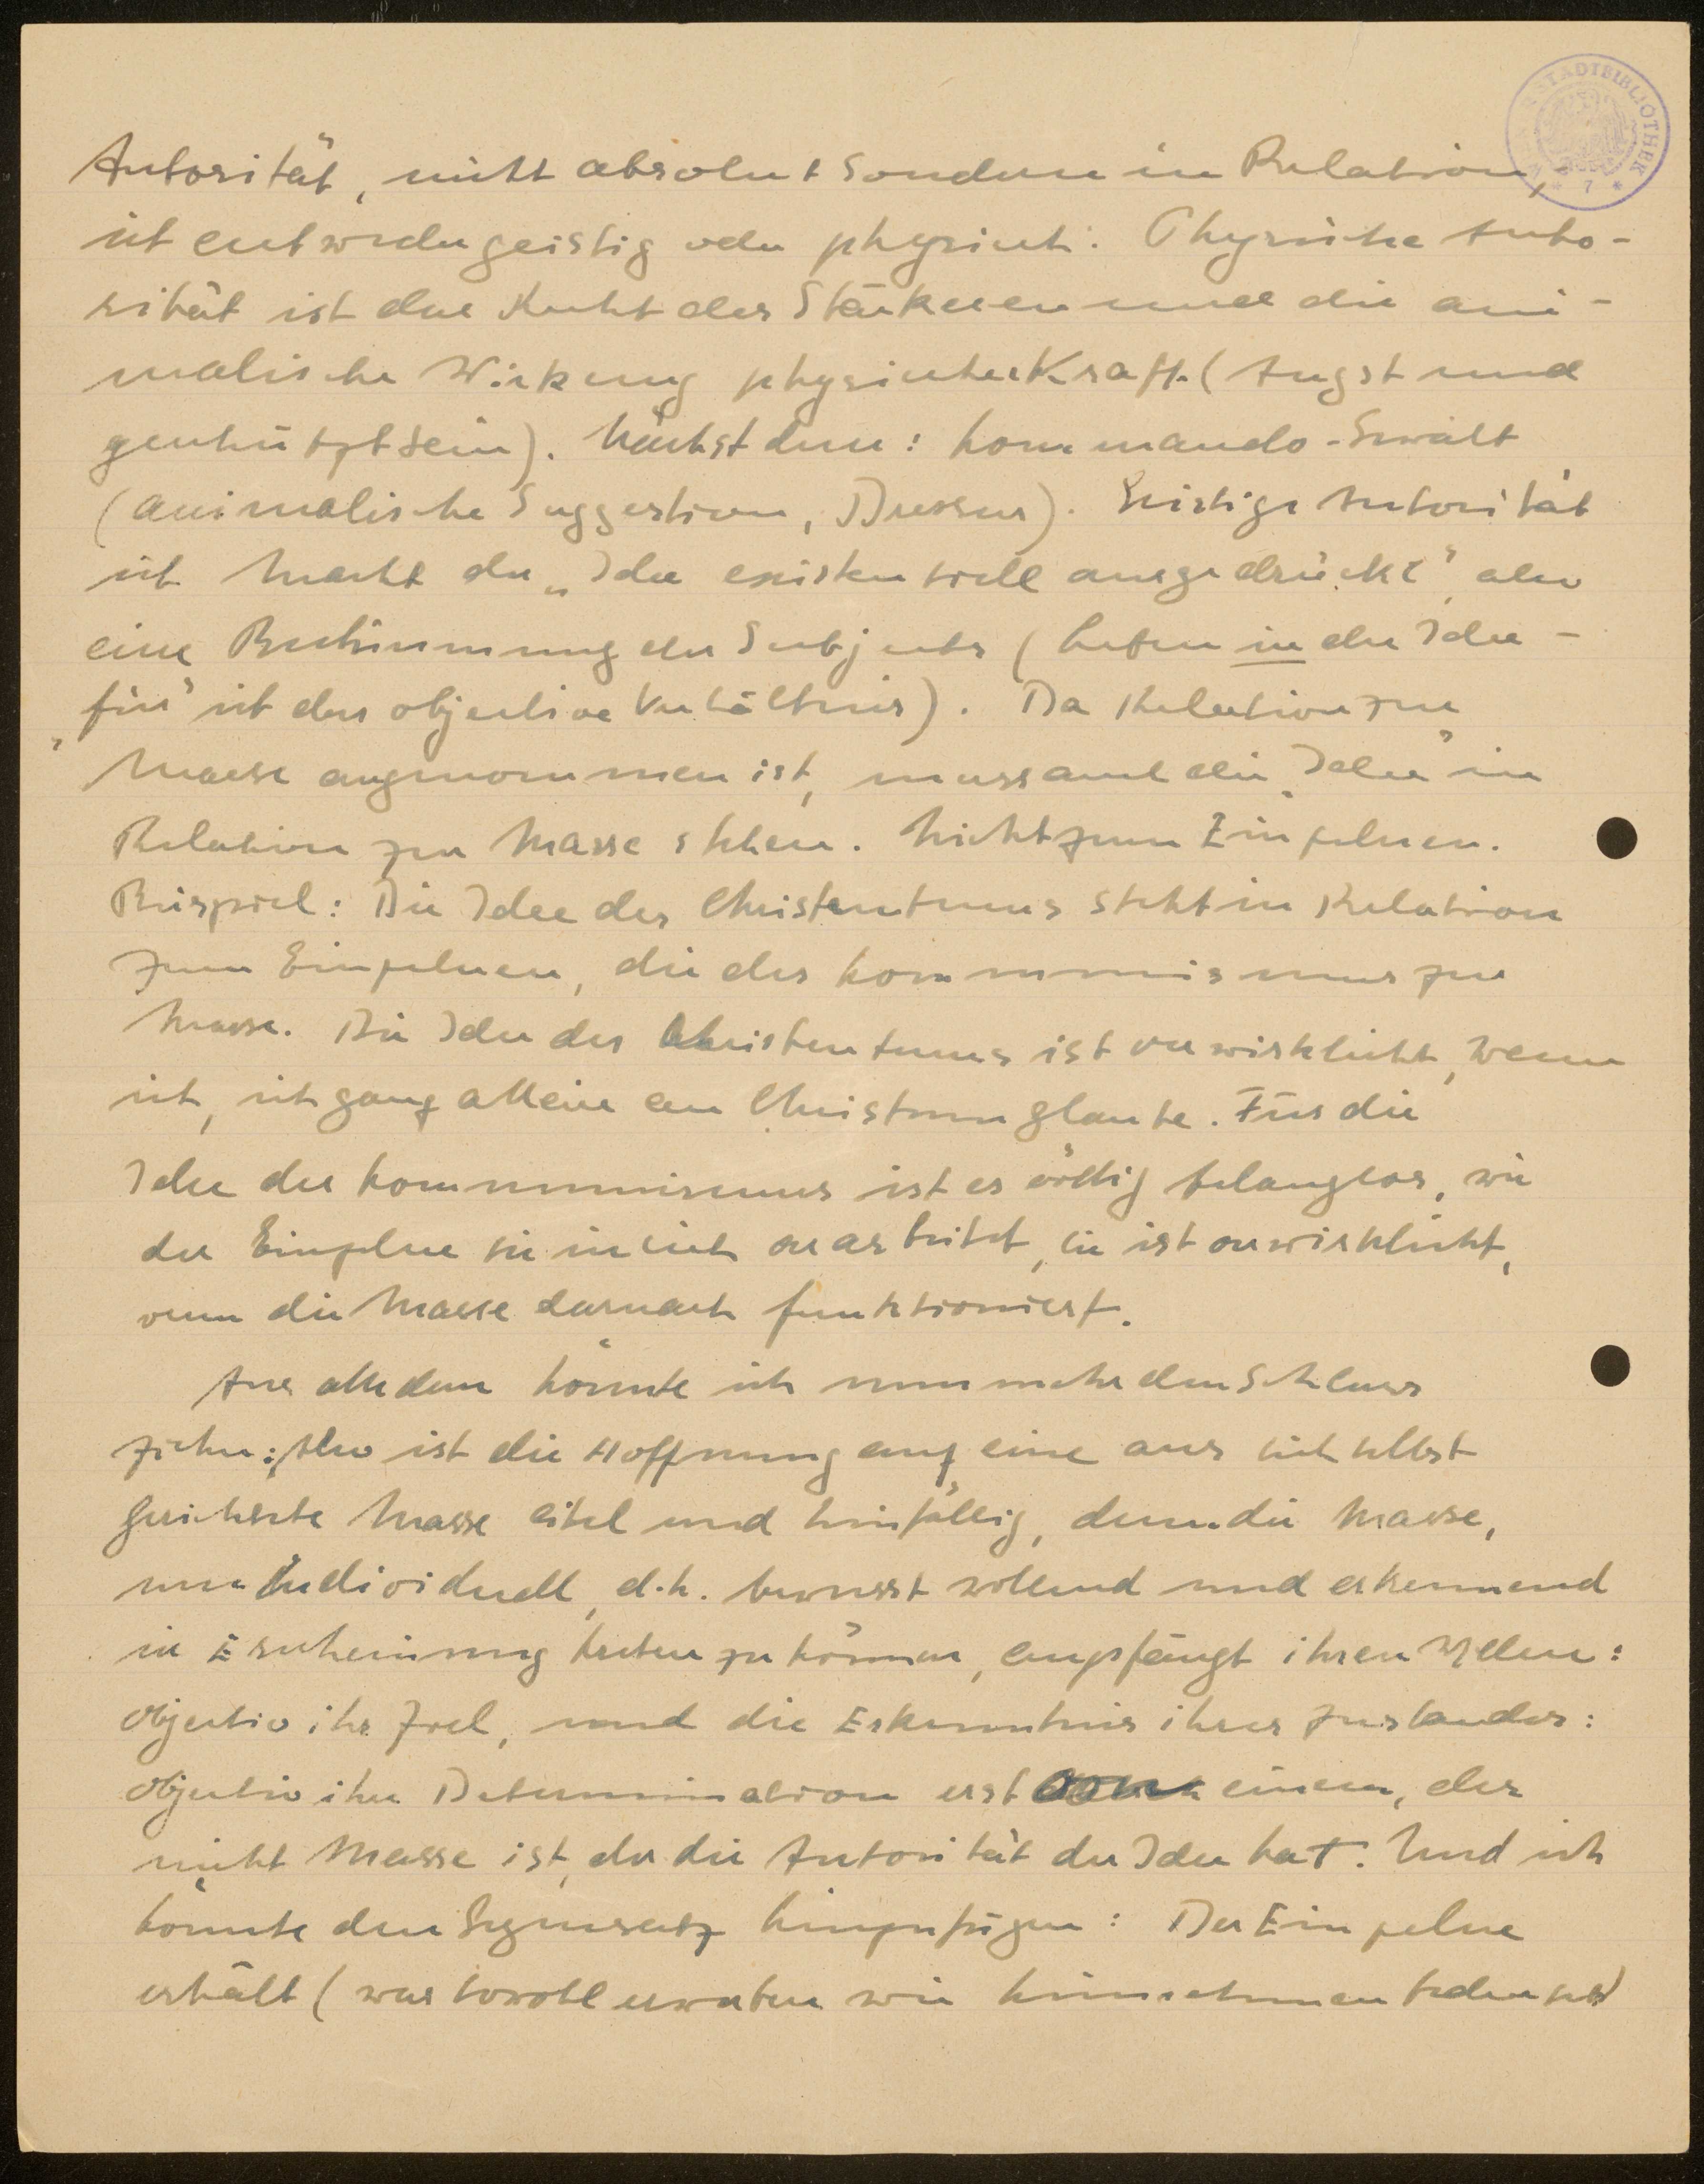 STADTBIBLIOTHEK
* 7 *
Autorität, nicht absolut sondern in Relation,
ist entweder geistig oder physisch. Physische Auto-
rität ist das Recht des Stärkeren und die ani-
malische Wirkung physischer Kraft (Angst und
geschütztsein). Nächstdem: Kommando-Gewalt
(animalische Suggestion, Dressur). Geistige Autorität
ist Macht der „Idee existentiell ausgedrückt“, also
eine Bestimmung des Subjects (leben in der Idee –
„für“ ist das objective Verhältnis). Da Relation zur
Masse angenommen ist, muss auch die „Idee“ in
Relation zur Masse stehen. Nicht zum Einzelnen.
Beispiel: Die Idee des Christentums steht in Relation
zum Einzelnen, die des Kommunismus zur
Masse. Die Idee des Christentums ist verwirklicht, wenn
ich, ich ganz allein an Christum glaube. Für die
Idee des Kommunismus ist es völlig belanglos, wie
der Einzelne sie in sich verarbeitet, sie ist verwirklicht,
wenn die Masse darnach funktioniert.
Aus alledem könnte ich nunmehr den Schluss
ziehen: Also ist die Hoffnung auf eine aus sich selbst
gesicherte Masse eitel und hinfällig, denn die Masse,
um individuell, d.h. bewusst wollend und erkennend
in Erscheinung treten zu können, empfängt ihren Willen:
objectiv ihr Ziel, und die Erkenntnis ihres Zustandes:
objectiv ihre Determination erst einem, der
nicht Masse ist, der die Autorität der Idee hat. Und ich
könnte den Gegensatz hinzufügen: Der Einzelne
erhält (was sowohl erwerben wie hinnehmen bedeutet)